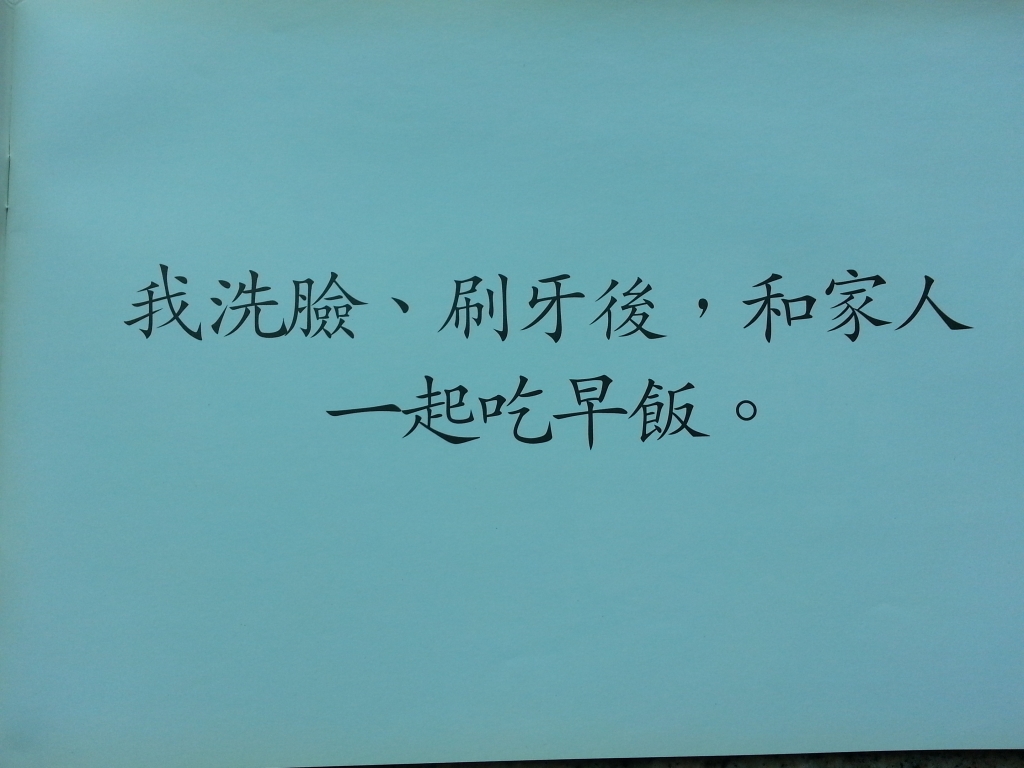 我洗臉、刷牙後，和家人
一起吃早飯。